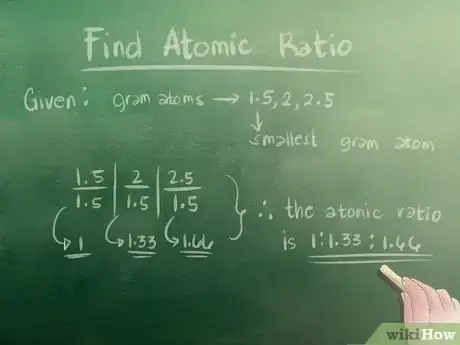 Find Atomic Ratio
Given: gram atoms → 1.5, 2, 2.5
↓
smallest gram atom
1.5/1.5 | 2/1.5 | 2.5/1.5
1 1.33 1.66
∴ the atomic ratio
is 1:1.33:1.66
wikiHow